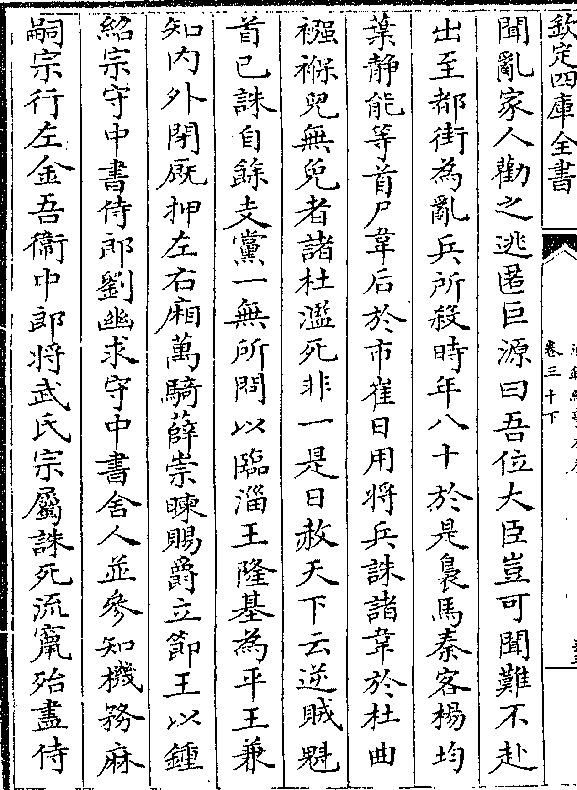 欽定四庫全書
卷三十下
聞亂家人勸之逃匿巨源曰吾位大臣豈可聞難不赴
出至都街為亂兵所殺時年八十於是梟馬秦客楊均
葉静能等首尸韋后於市崔日用將兵誅諸韋於杜曲
襁褓兒無免者諸杜濫死非一是日赦天下云逆賊魁
首已誅自餘支黨一無所問以臨淄王隆基為平王兼
知内外閑厩押左右廂萬騎薛崇暕賜爵立節王以鍾
紹宗守中書侍郎劉幽求守中書舍人並參知機務麻
嗣宗行左金吾衞中郎将武氏宗屬誅死流竄殆盡侍